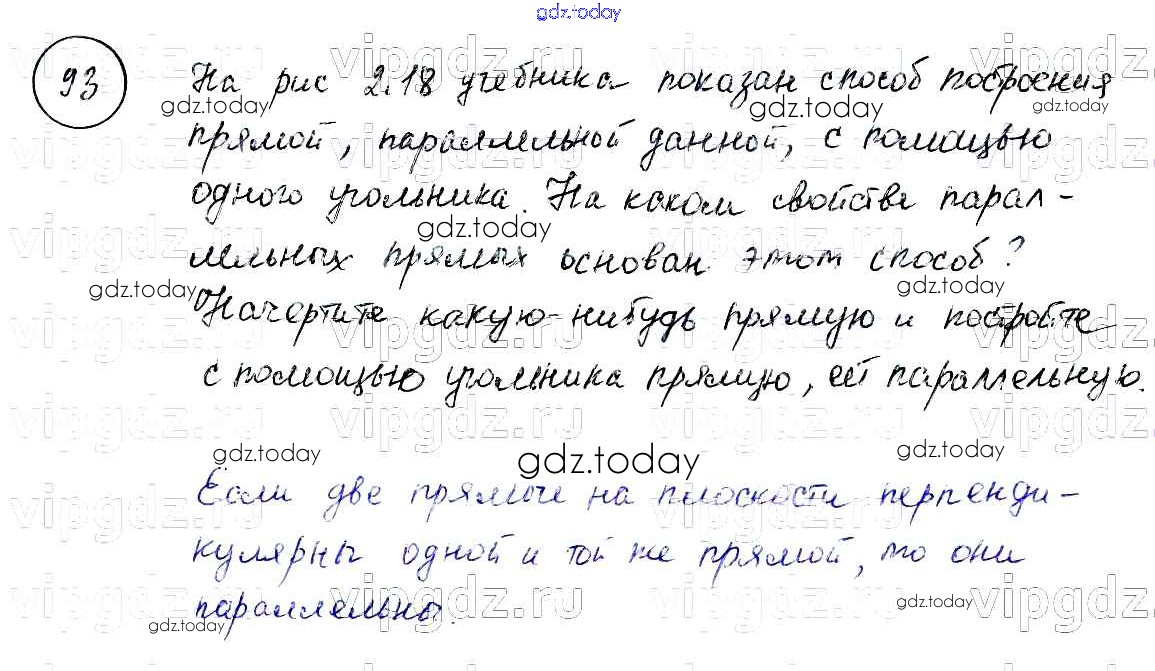 gdz.today
93 На рис 2.18 учебника показан способ построения
прямой, параллельной данной, с помощью
одного угольника. На каком свойстве парал-
лельных прямых основан этот способ?
Начертите какую-нибудь прямую и постройте
с помощью угольника прямую, ей параллельную.
Если две прямые на плоскости перпенди-
кулярны одной и той же прямой, то они
параллельны.